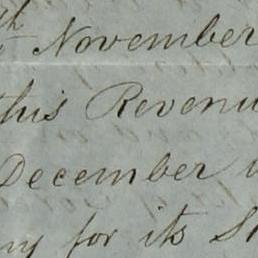 th November
this Revenu
December
ny for its S